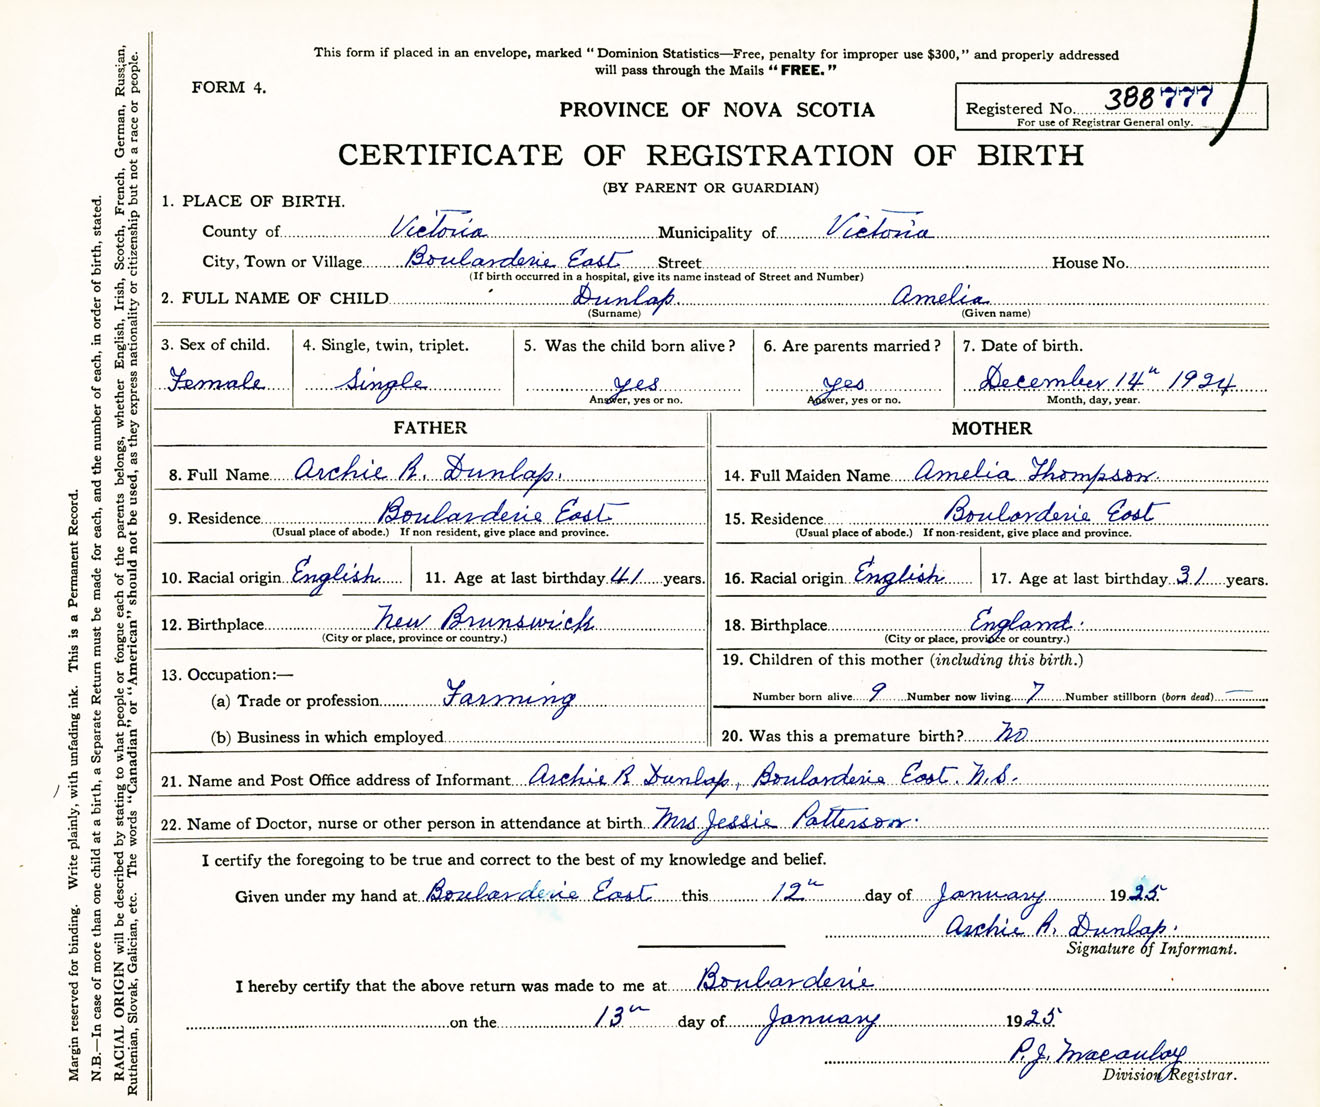 This form if placed in an envelope, marked "Dominion Statistics—Free, penalty for improper use $300," and properly addressed
will pass through the Mails "FREE."
FORM 4.
PROVINCE OF NOVA SCOTIA
Registered No. 388777
For use of Registrar General only.
CERTIFICATE OF REGISTRATION OF BIRTH
(BY PARENT OR GUARDIAN)
1. PLACE OF BIRTH.
County of Victoria Municipality of Victoria
City, Town or Village Boularderie East Street House No.
(If birth occurred in a hospital, give its name instead of Street and Number)
2. FULL NAME OF CHILD Dunlap Amelia
(Surname) (Given name)
3. Sex of child. 4. Single, twin, triplet. 5. Was the child born alive? 6. Are parents married? 7. Date of birth.
Female Single yes yes December 14th 1924
Answer, yes or no. Answer, yes or no. Month, day, year.
FATHER MOTHER
8. Full Name Archie R. Dunlap. 14. Full Maiden Name Amelia Thompson.
9. Residence Boularderie East 15. Residence Boularderie East
(Usual place of abode.) If non resident, give place and province. (Usual place of abode.) If non-resident, give place and province.
10. Racial origin English 11. Age at last birthday 41 years. 16. Racial origin English 17. Age at last birthday 31 years.
12. Birthplace New Brunswick 18. Birthplace England.
(City or place, province or country.) (City or place, province or country.)
13. Occupation:— 19. Children of this mother (including this birth.)
(a) Trade or profession Farming Number born alive 9 Number now living 7 Number stillborn (born dead) —
(b) Business in which employed 20. Was this a premature birth? No
21. Name and Post Office address of Informant Archie R Dunlap, Boularderie East. N.S.
22. Name of Doctor, nurse or other person in attendance at birth Mrs Jessie Patterson.
I certify the foregoing to be true and correct to the best of my knowledge and belief.
Given under my hand at Boularderie East this 12th day of January 1925
Archie R. Dunlap.
Signature of Informant.
I hereby certify that the above return was made to me at Boularderie
on the 13th day of January 1925
P.J. Macaulay
Division Registrar.
Margin reserved for binding. Write plainly, with unfading ink. This is a Permanent Record.
N.B.—In case of more than one child at a birth, a Separate Return must be made for each, and the number of each, in order of birth, stated.
RACIAL ORIGIN will be described by stating to what people or tongue each of the parents belongs, whether English, Irish, Scotch, French, German, Russian,
Ruthenian, Slovak, Galician, etc. The words "Canadian" or "American" should not be used, as they express nationality or citizenship but not a race or people.